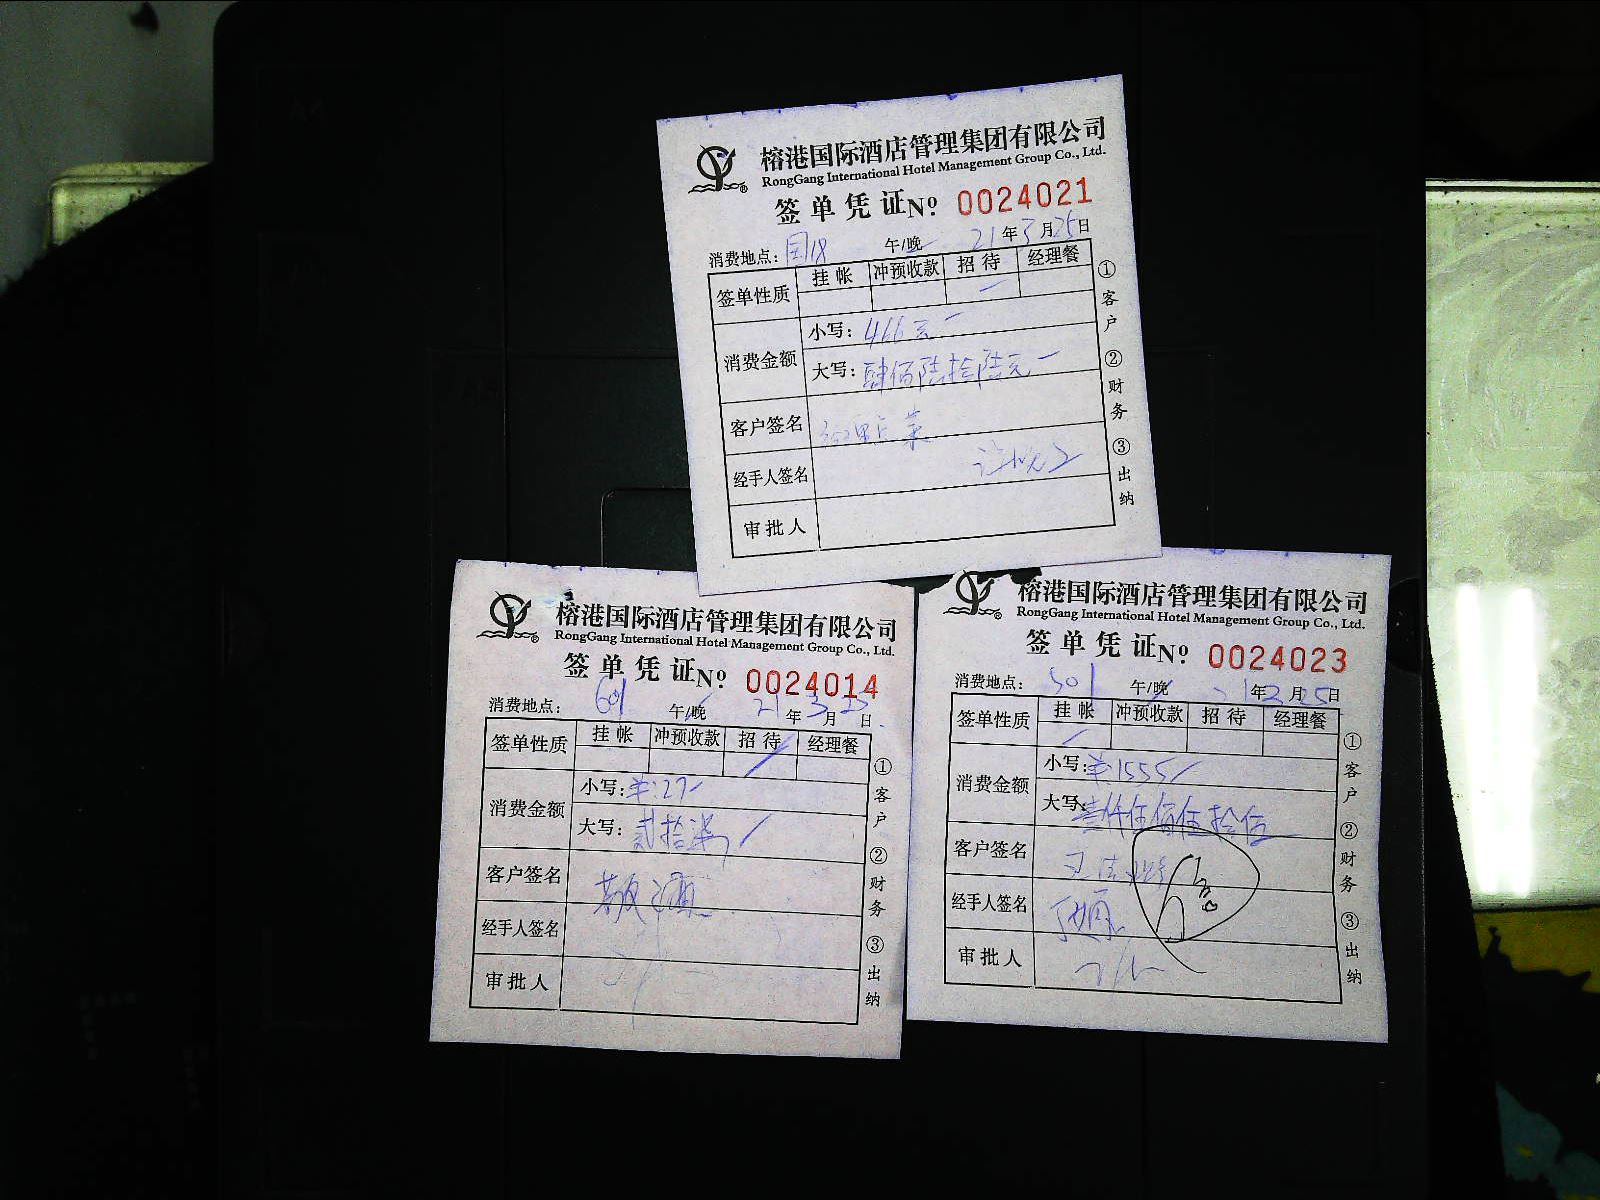 榕港国际酒店管理集团有限公司
RongGang International Hotel Management Group Co., Ltd.
签单凭证 Nº 0024021
消费地点： 午/晚 21年3月25日
签单性质 挂帐 冲预收款 招待 经理餐
消费金额 小写：466元
大写：肆佰陆拾陆元
客户签名
经手人签名
审批人
①客户 ②财务 ③出纳
榕港国际酒店管理集团有限公司
RongGang International Hotel Management Group Co., Ltd.
签单凭证 Nº 0024014
消费地点：601 午/晚 21年3月25日
签单性质 挂帐 冲预收款 招待 经理餐
消费金额 小写：¥:27
大写：贰拾柒
客户签名
经手人签名
审批人
①客户 ②财务 ③出纳
榕港国际酒店管理集团有限公司
RongGang International Hotel Management Group Co., Ltd.
签单凭证 Nº 0024023
消费地点：501 午/晚 21年3月25日
签单性质 挂帐 冲预收款 招待 经理餐
消费金额 小写：¥:1555
大写：壹仟伍佰伍拾伍
客户签名
经手人签名
审批人
①客户 ②财务 ③出纳